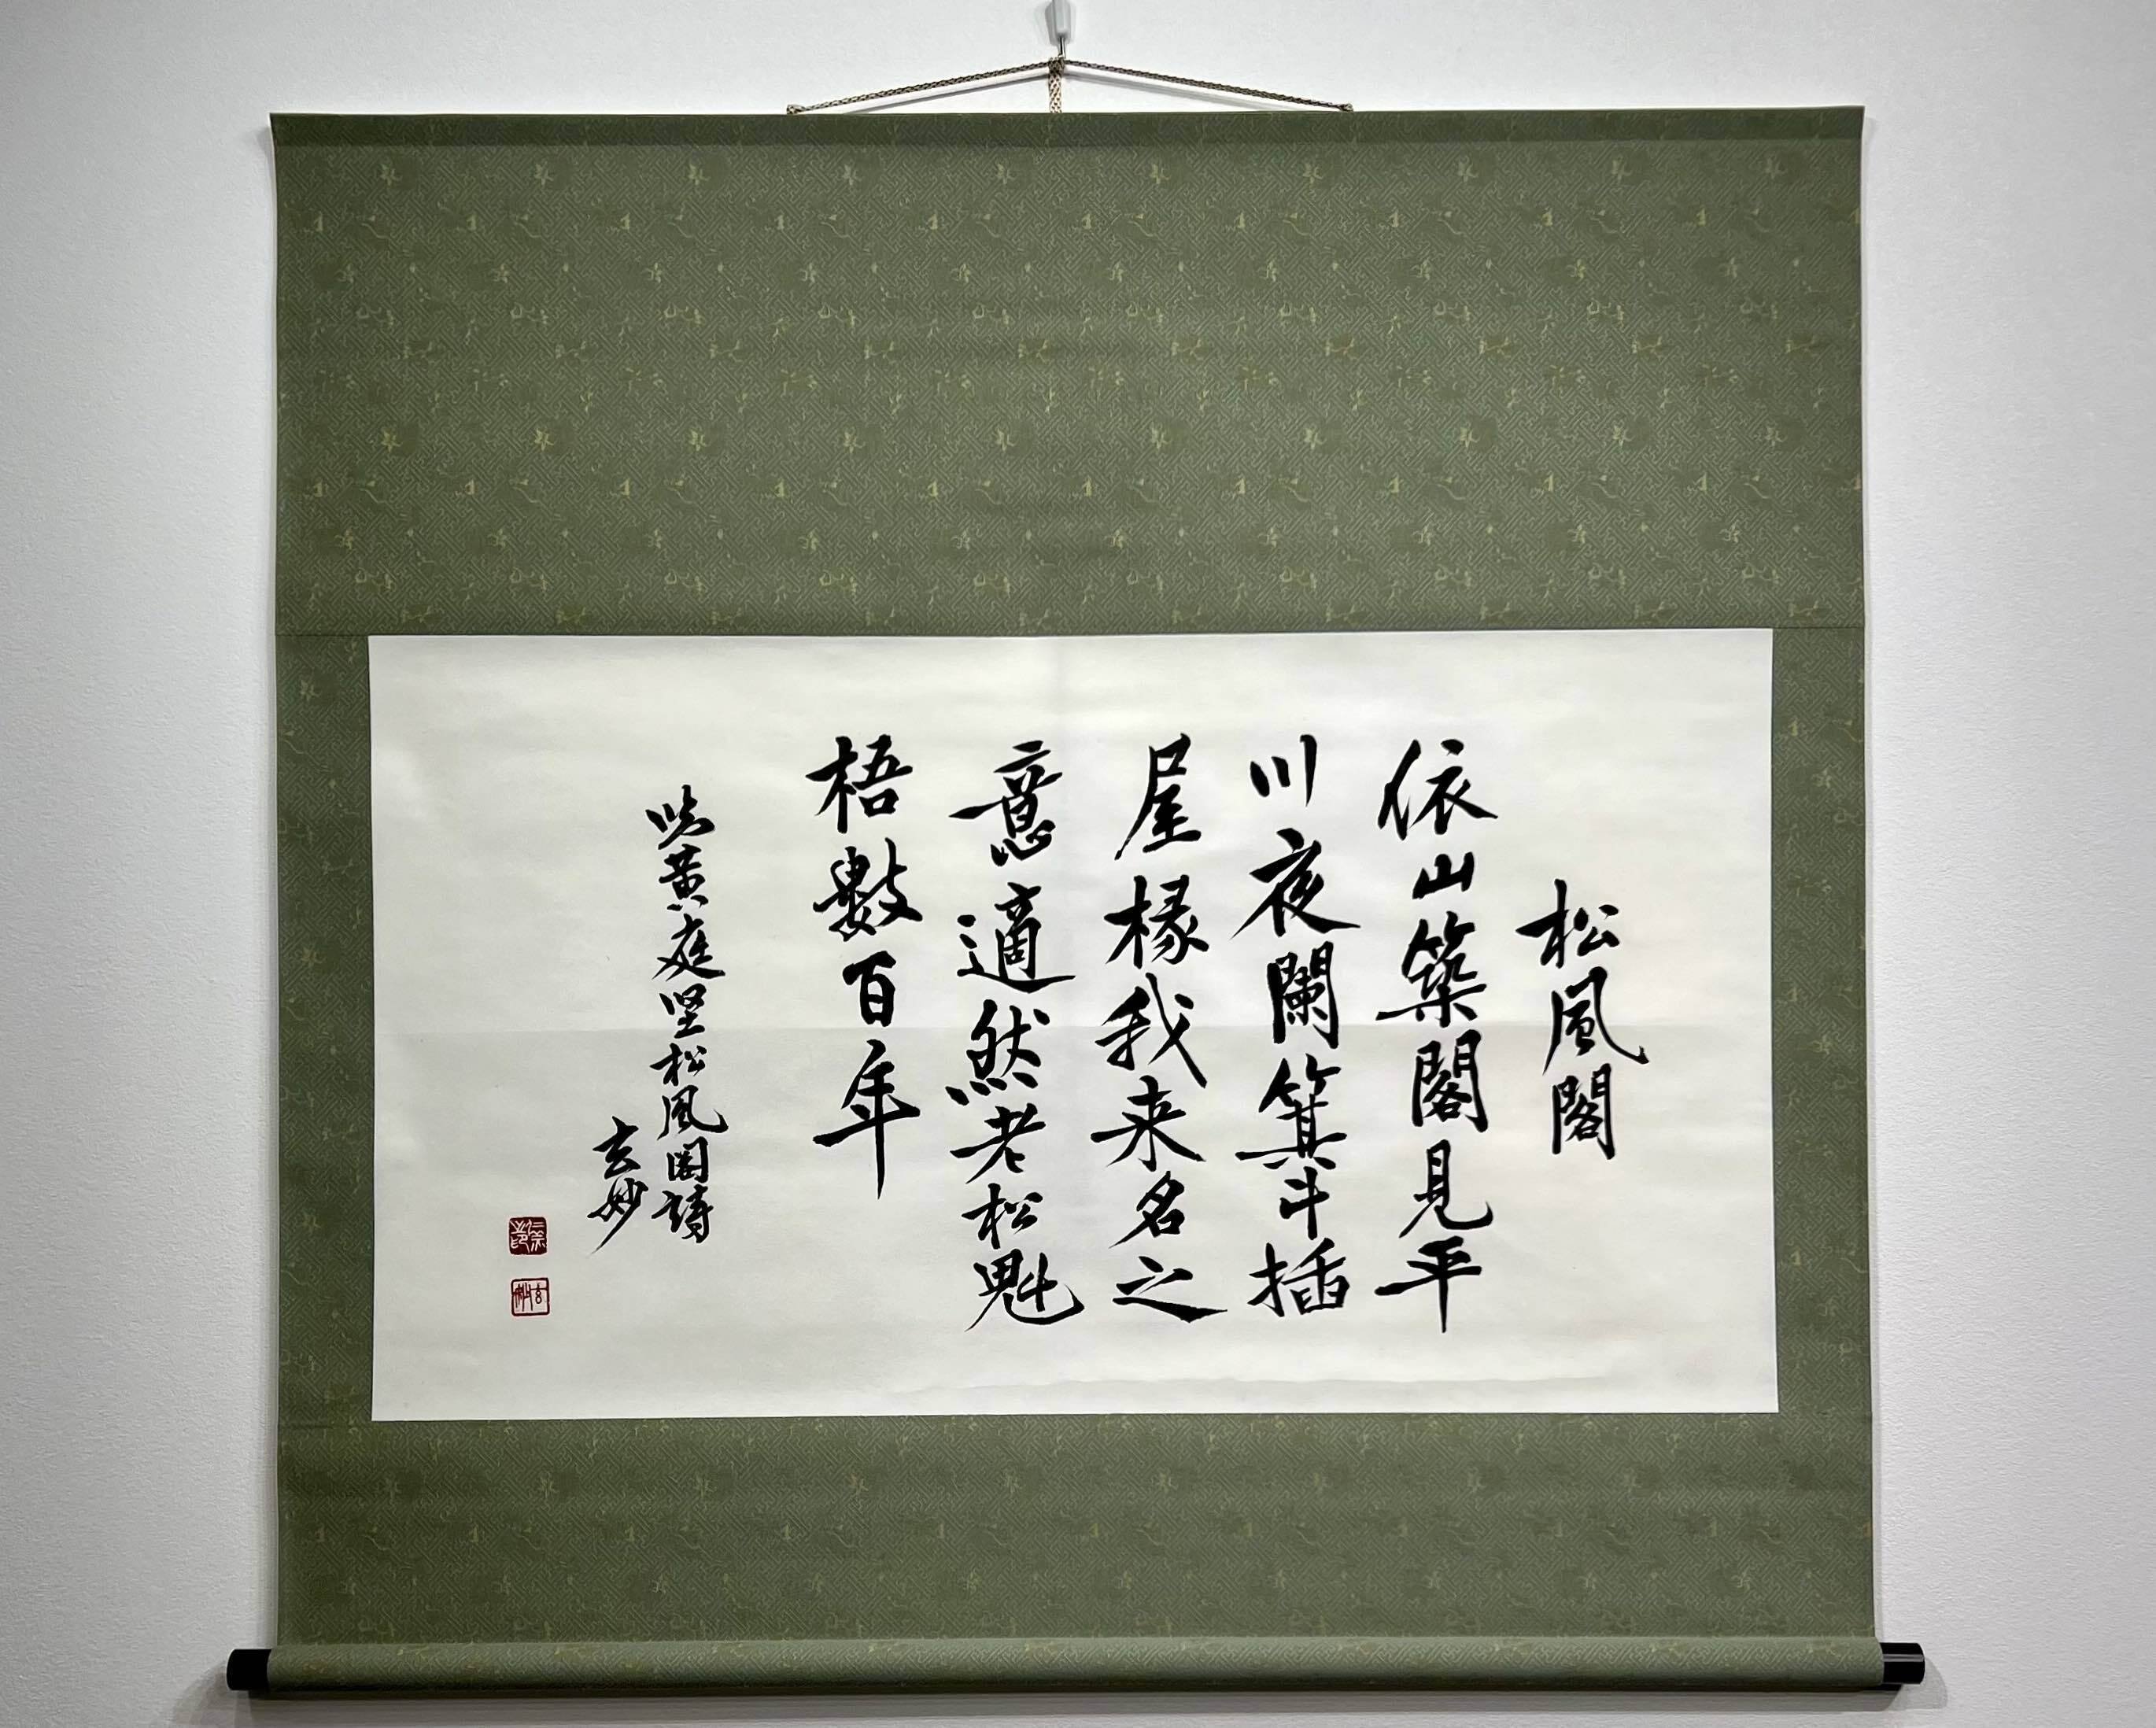 松風閣
依山築閣見平
川夜闌箕斗插
屋椽我来名之
意適然老松魁
梧數百年
臨黄庭堅松風閣詩
玄妙
玄妙